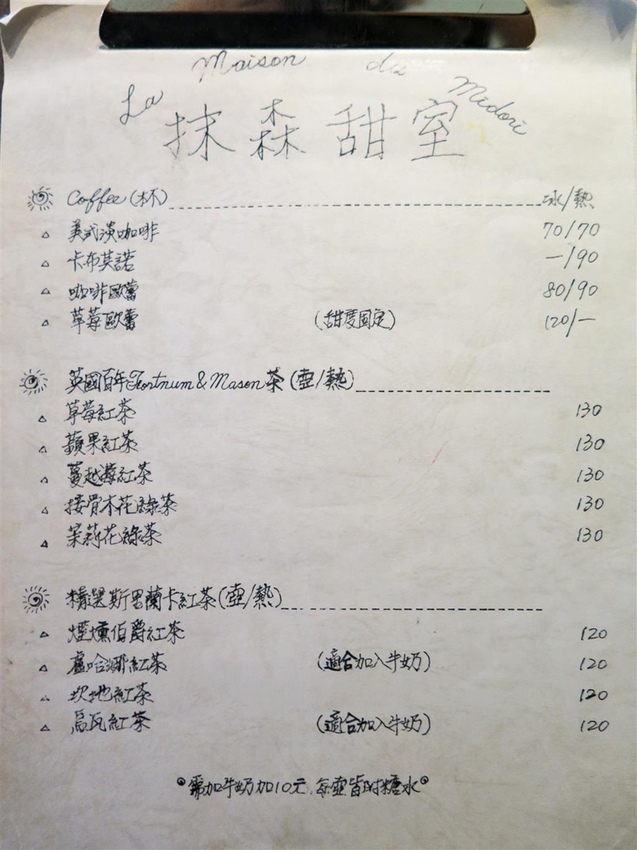 La Maison du Midori
抹森甜室
Coffee (杯) 冰/熱
△ 美式淡咖啡 70/70
△ 卡布其諾 —/90
△ 咖啡歐蕾 80/90
△ 草莓歐蕾 (甜度固定) 120/—
英國百年Fortnum & Mason茶 (壺/熱)
△ 草莓紅茶 130
△ 蘋果紅茶 130
△ 蔓越莓紅茶 130
△ 接骨木花綠茶 130
△ 茉莉花綠茶 130
精選斯里蘭卡紅茶 (壺/熱)
△ 煙燻伯爵紅茶 120
△ 盧哈娜紅茶 (適合加入牛奶) 120
△ 坎地紅茶 120
△ 烏瓦紅茶 (適合加入牛奶) 120
需加牛奶加10元,每壺皆附糖水